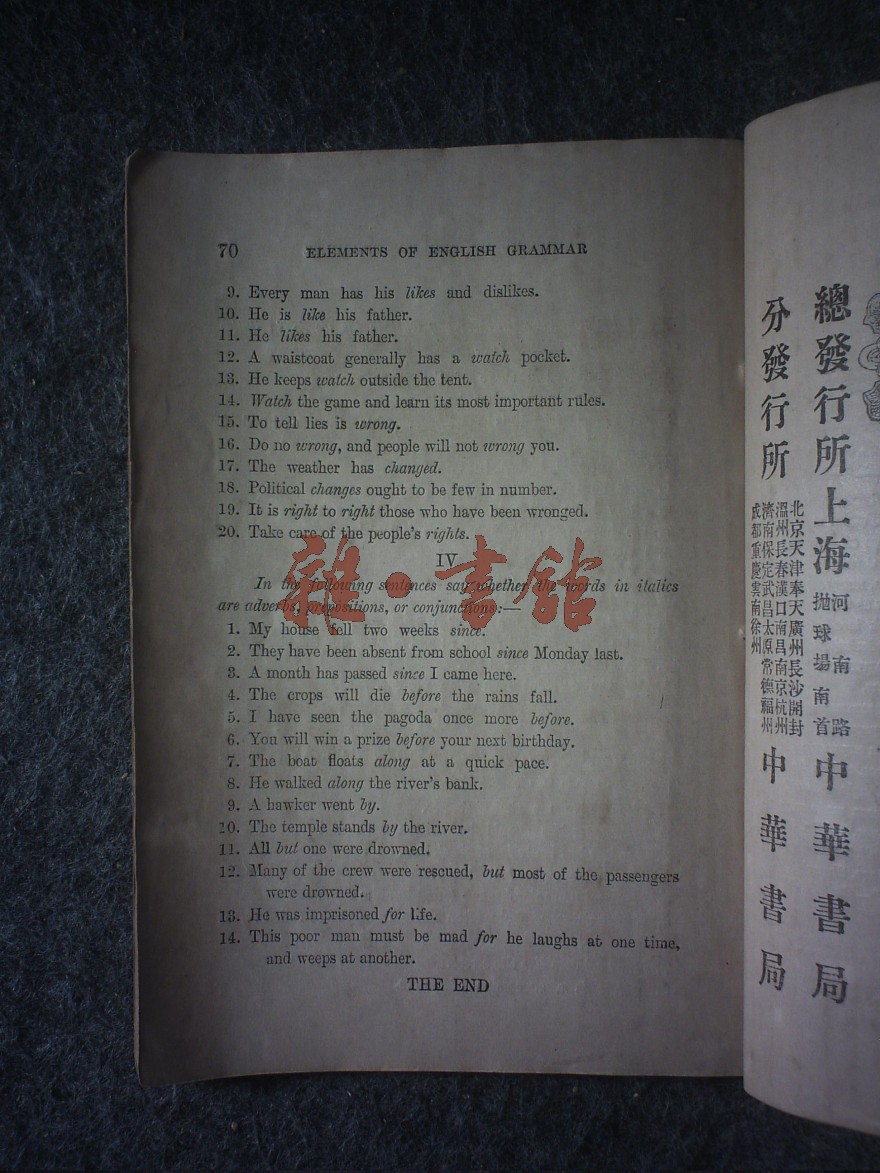 70 ELEMENTS OF ENGLISH GRAMMAR
9. Every man has his likes and dislikes.
10. He is like his father.
11. He likes his father.
12. A waistcoat generally has a watch pocket.
13. He keeps watch outside the tent.
14. Watch the game and learn its most important rules.
15. To tell lies is wrong.
16. Do no wrong, and people will not wrong you.
17. The weather has changed.
18. Political changes ought to be few in number.
19. It is right to right those who have been wronged.
20. Take care of the people's rights.
IV
In the following sentences say whether the words in italics
are adverbs, prepositions, or conjunctions:—
1. My house fell two weeks since.
2. They have been absent from school since Monday last.
3. A month has passed since I came here.
4. The crops will die before the rains fall.
5. I have seen the pagoda once more before.
6. You will win a prize before your next birthday.
7. The boat floats along at a quick pace.
8. He walked along the river's bank.
9. A hawker went by.
10. The temple stands by the river.
11. All but one were drowned.
12. Many of the crew were rescued, but most of the passengers
were drowned.
13. He was imprisoned for life.
14. This poor man must be mad for he laughs at one time,
and weeps at another.
THE END
雜·書館
總發行所上海
河南路
拋球場南首
中華書局
分發行所
北京天津奉天廣州長沙開封
溫州長春漢口南昌南京杭州
濟南保定武昌太原常德福州
成都重慶雲南徐州
中華書局